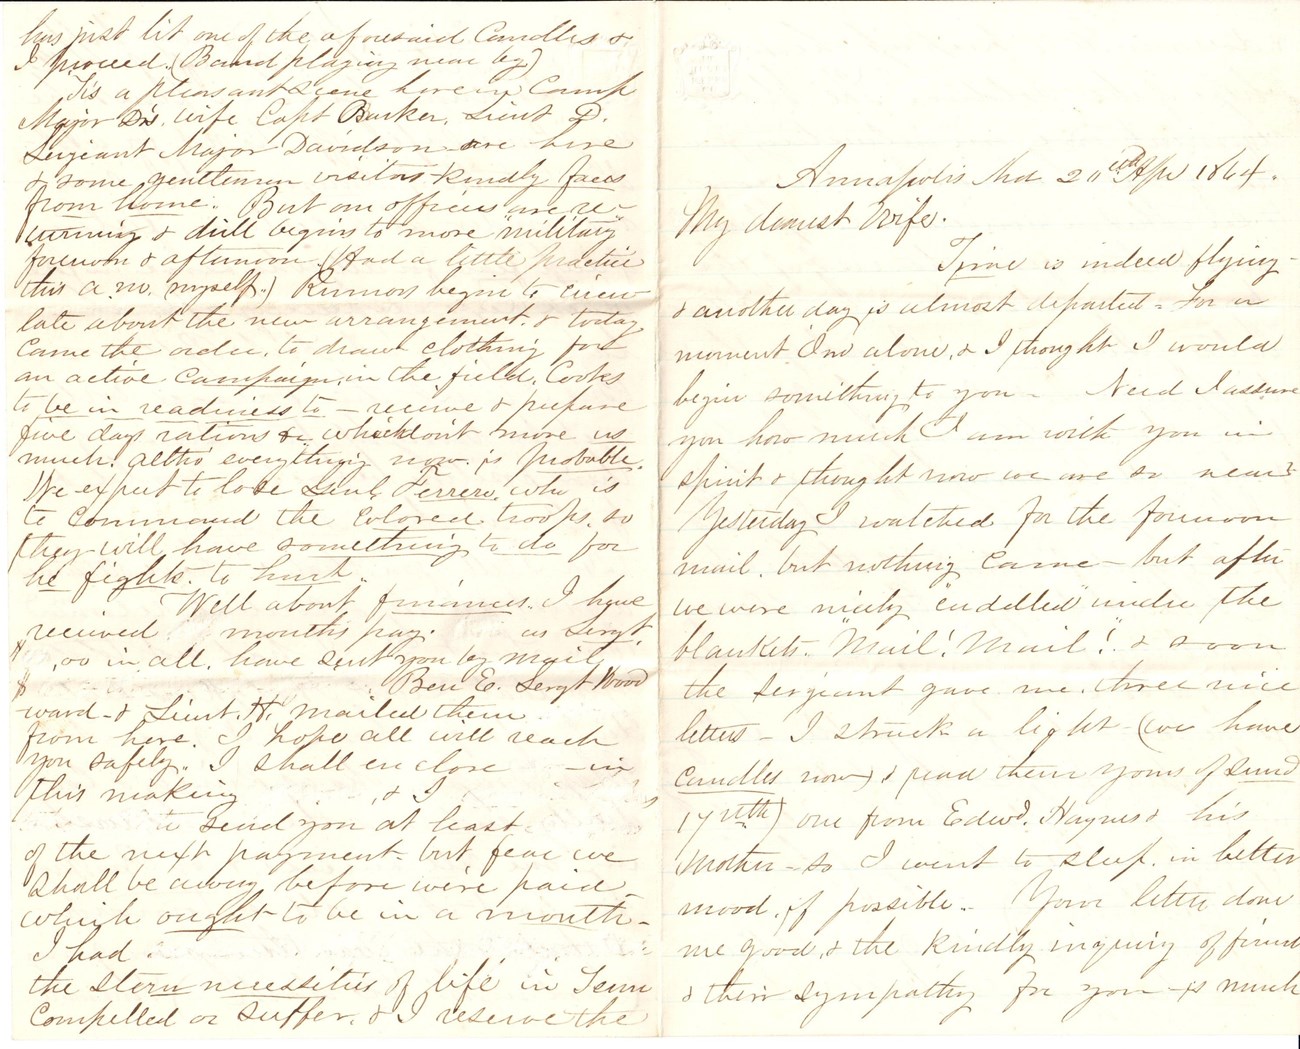 Annapolis Md 20th Apr 1864.
My dearest Wife.
Time is indeed flying -
& another day is almost departed - For a
moment I'm alone, & I thought I would
begin something to you - Need I assure
you how much I am with you in
spirit & thought now we are so near?
Yesterday I watched for the forenoon
mail. but nothing came - but after
we were nicely "cudelled" under the
blankets. "Mail! Mail"! & soon
the sergeant gave me three nice
letters - I struck a light - (we have
candles now) & read them yours of Sund
17th) one from Edwd. Haynes & his
mother - so I went to sleep in better
mood, if possible - Your letter done
me good, & the kindly inquiry of friends
& their sympathy for you - is much
has just lit one of the aforesaid Candles &
I proceed. (Band playing near by)
Tis a pleasant scene here in Camp
Major D's. wife Capt Barker. Lieut D.
Sergeant Major Davidson are here
& some gentlemen visitors kindly faces
from home. But our officers are re-
turning & drill begins to more "military"
forenoon & afternoon. (Had a little practice
this a.m. myself.) Rumors begin to circu-
late about the new arrangement. & today
came the order. to draw clothing for
an active campaign, in the field. Cooks
to be in readiness to - receive & prepare
five days rations &c which dont move us
much. altho' everything now is probable.
We expect to lose Genl, Ferrero. who is
to command the colored troops. so
they will have something to do for
he fights. to hurt.
Well about finances. I have
received months pay. as Sergt.
$ .00 in all. have sent you by mail
$ Ben E. Sergt Wood
ward - & Lieut. H. mailed them
from here. I hope all will reach
you safely. I shall enclose in
this making , & I
to send you at least
of the next payment - but fear we
shall be away before we're paid -
which ought to be in a month -
I had
the stern necessities of life' in Tenn
compelled or suffer. & I reserve the